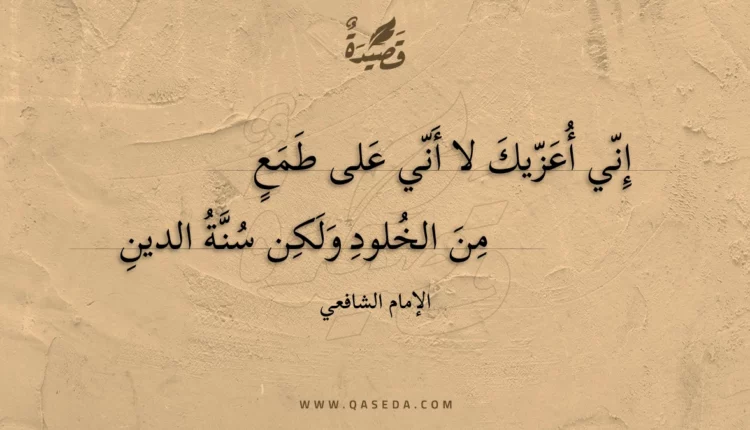 قَصِيدَةٌ
إِنّي أُعَزّيكَ لا أَنّي عَلى طَمَعٍ
مِنَ الخُلودِ وَلَكِن سُنَّةُ الدينِ
الإمام الشافعي
WWW.QASEDA.COM